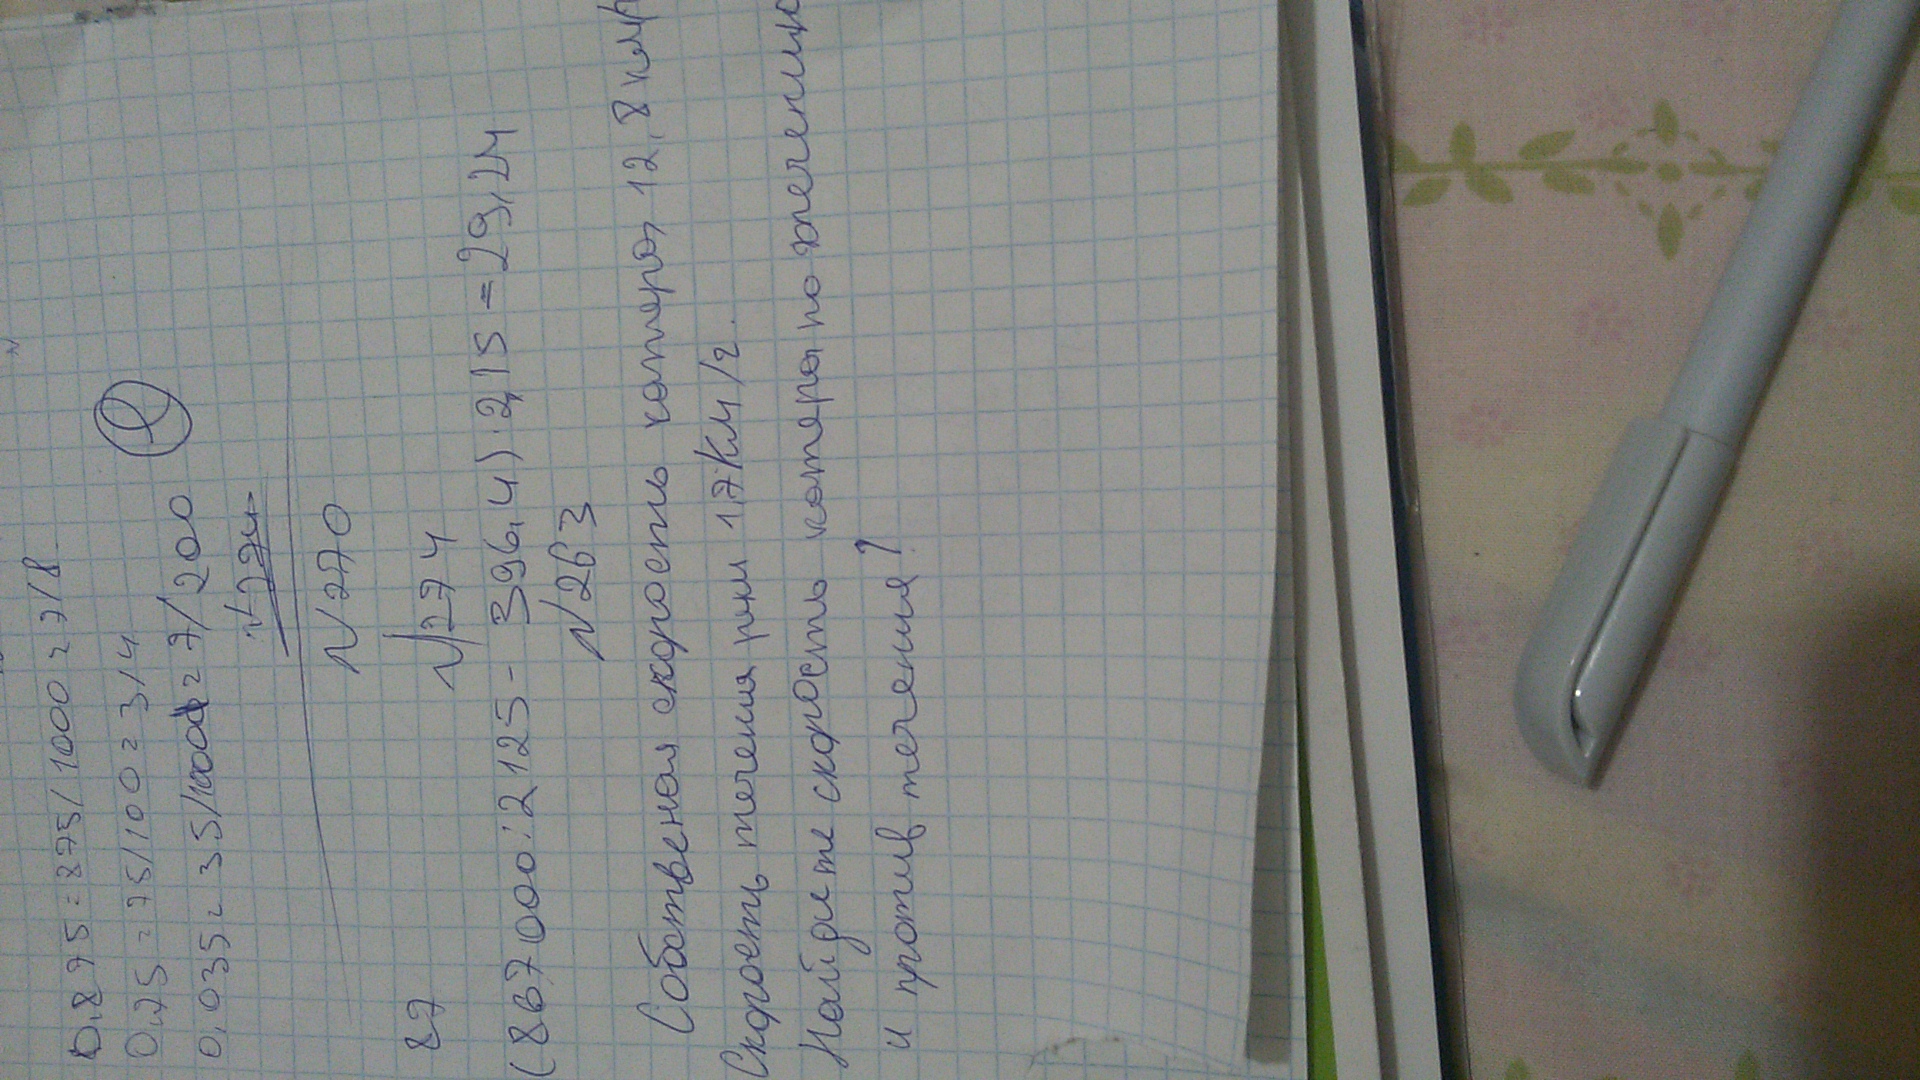 0,875 = 875/1000 = 7/8
0,75 = 75/100 = 3/4
0,035 = 35/1000 = 7/200
N 270
87 N 274
(867000:2125 - 396,4) · 2,15 = 29,24
N 263
Собственая скорость катера 12,8 км/ч
Скорость течения реки 1,7 км/ч.
Найдите скорость катера по течению
и против течения?